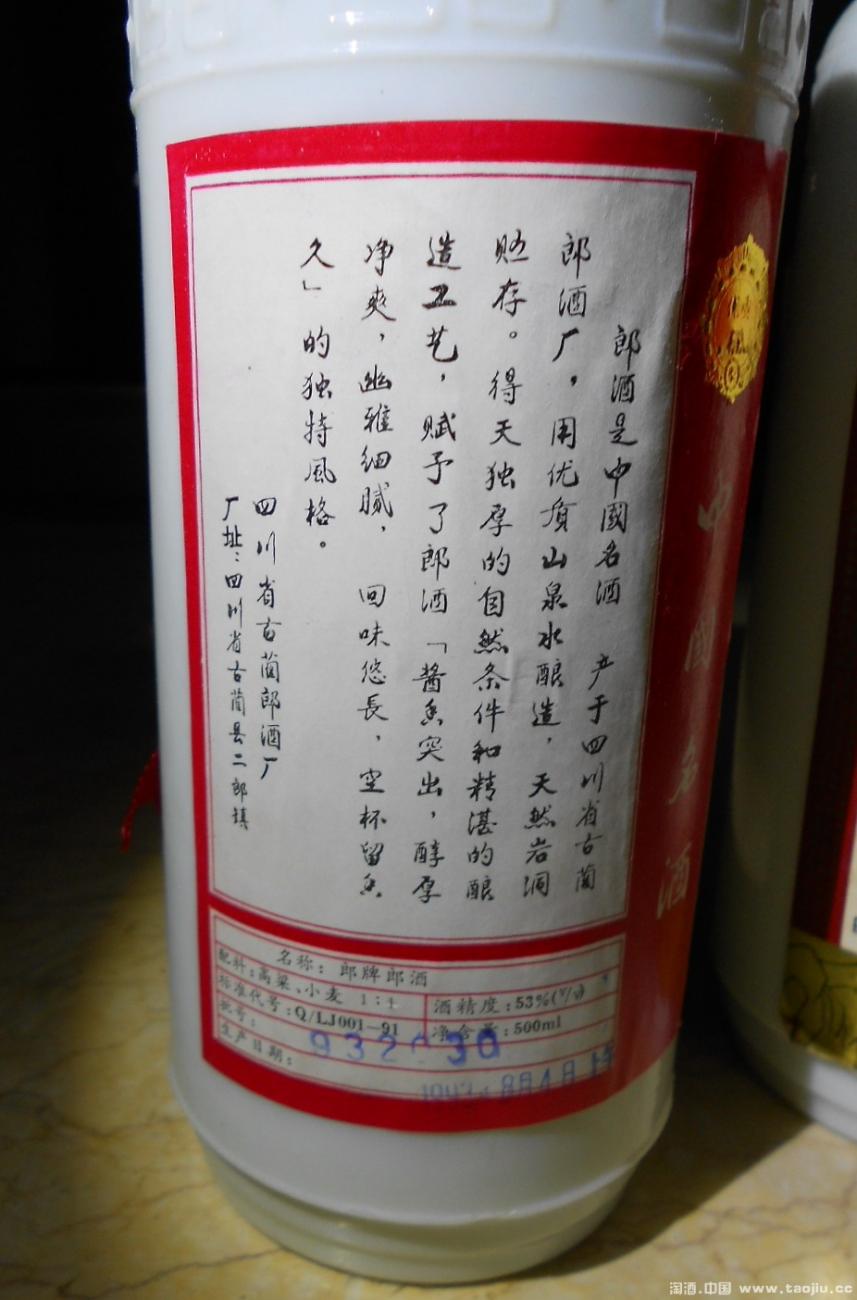 郎酒是中國名酒　产于四川省古蔺
郎酒厂，用优质山泉水酿造，天然岩洞
贮存。得天独厚的自然条件和精湛的酿
造工艺，赋予了郎酒「酱香突出，醇厚
净爽，幽雅细腻，回味悠長，空杯留香
久」的独特風格。
四川省古蔺郎酒厂
厂址：四川省古蔺县二郎镇
中國名酒
名称：郎牌郎酒
配料：高粱、小麦 1:1
酒精度：53%(V/V)
标准代号：Q/LJ001-91
净含量：500ml
批号：
生产日期：
8月4日
淘酒.中国 www.taojiu.cc